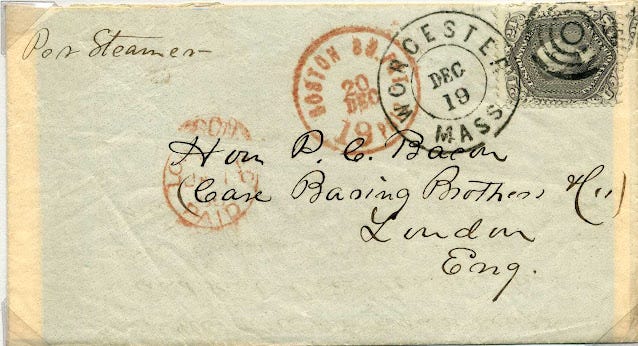 Per Steamer
BOSTON BR. PK
20
DEC
19
WORCESTER
DEC
19
MASS
PAID
Hon P. C. Bacon
Care Baring Brothers & Co
London
Eng.